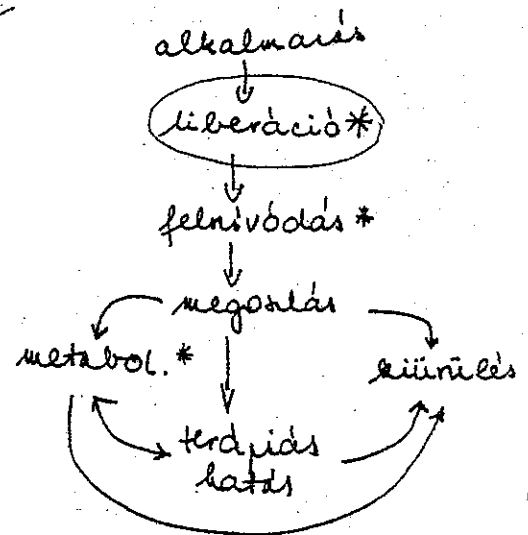 alkalmazás
liberáció*
felszívódás*
megoszlás
metabol.*
kiürülés
terápiás
hatás